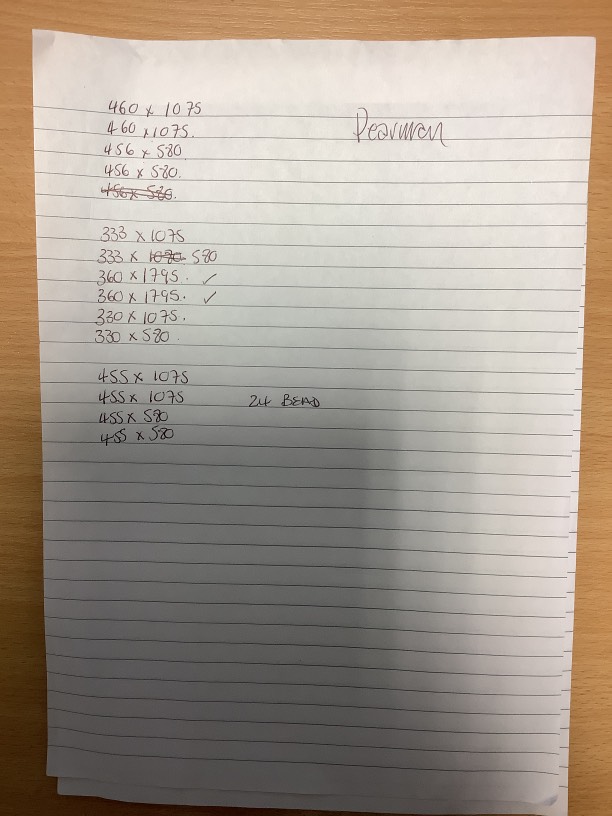 460 x 1075
Pearman
460 x 1075.
456 x 580
456 x 580.
456 x 580.
333 x 1075
333 x 1080 580
360 x 1795. ✓
360 x 1795. ✓
330 x 1075.
330 x 580
455 x 1075
455 x 1075
24 BEAD
455 x 580
455 x 580